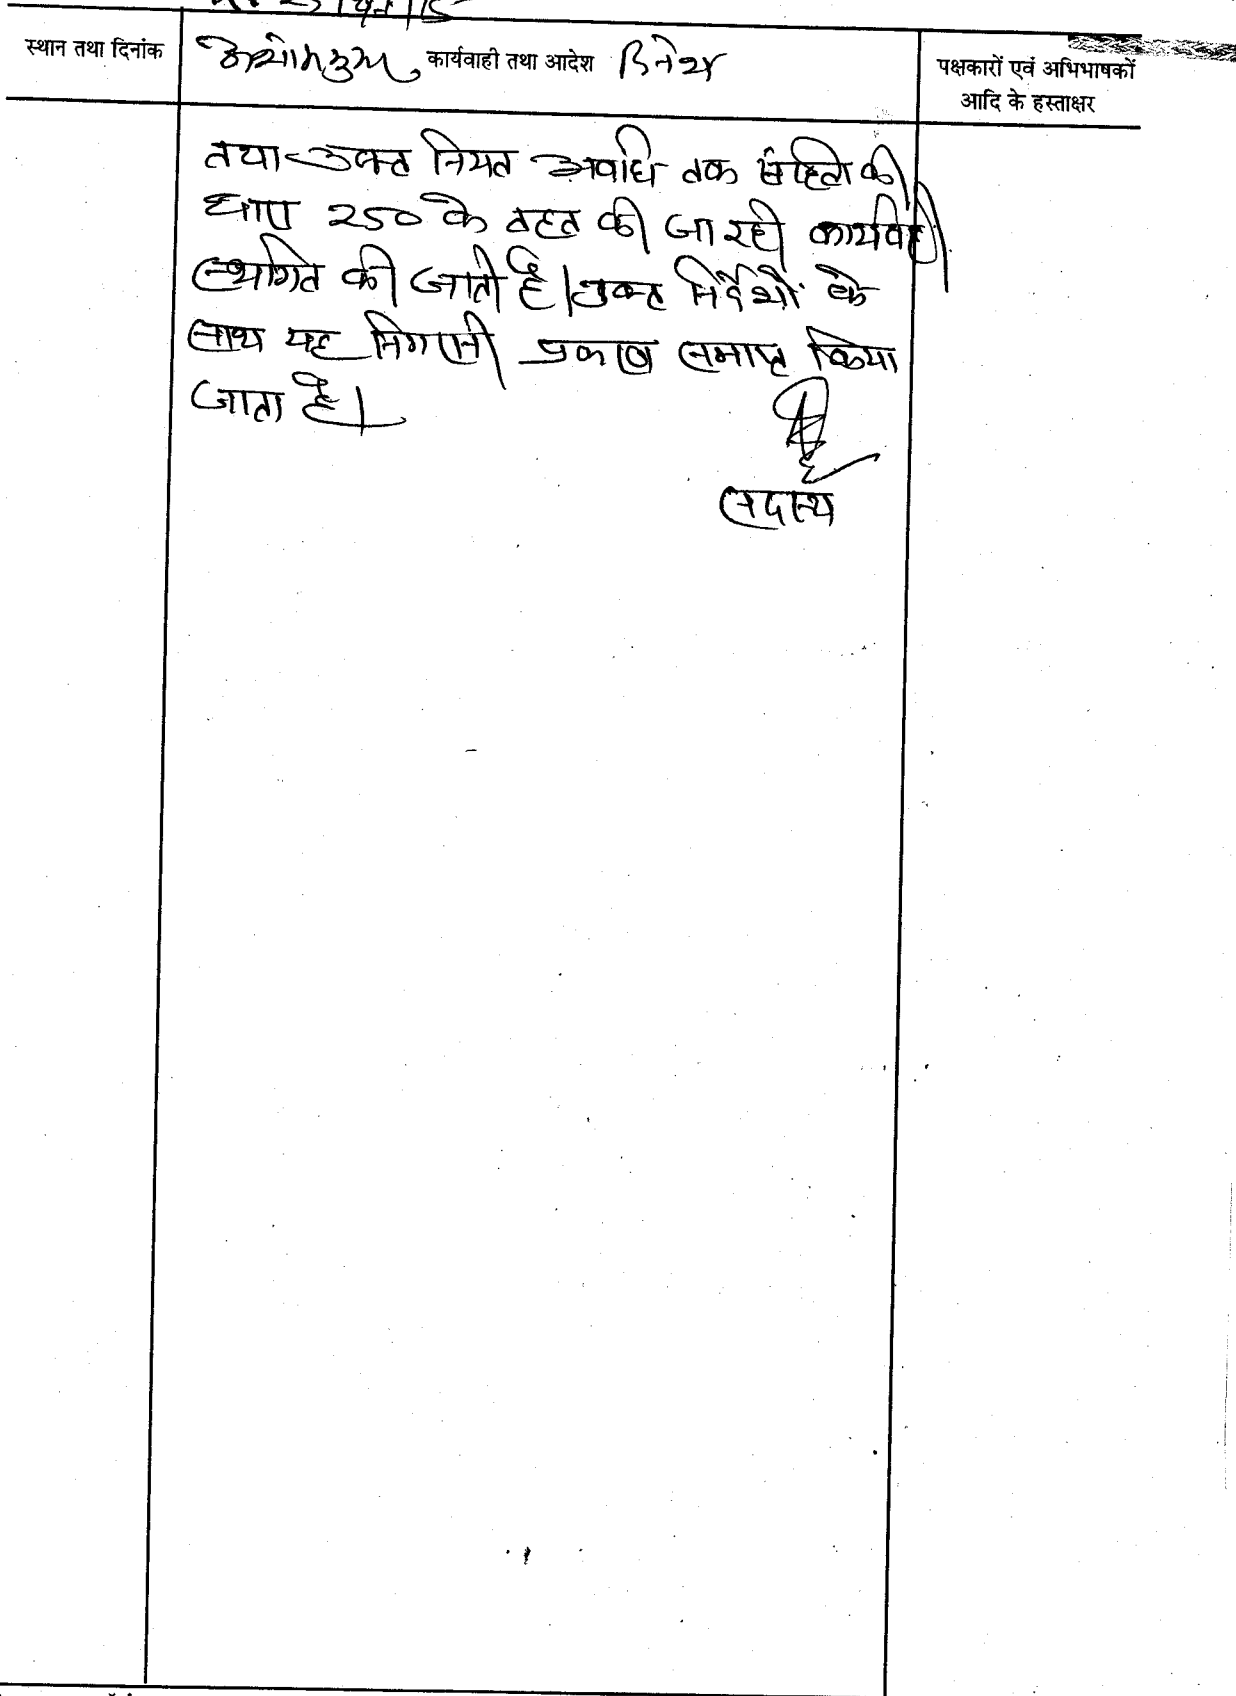 स्थान तथा दिनांक
कार्यवाही तथा आदेश दिनेश
पक्षकारों एवं अभिभाषकों
आदि के हस्ताक्षर
तथा उक्त नियत अवधि तक संहिता की
धारा 250 के तहत की जा रही कार्यवाही
स्थगित की जाती है। उक्त निर्देशों के
साथ यह निगरानी प्रकरण समाप्त किया
जाता है।
सदस्य